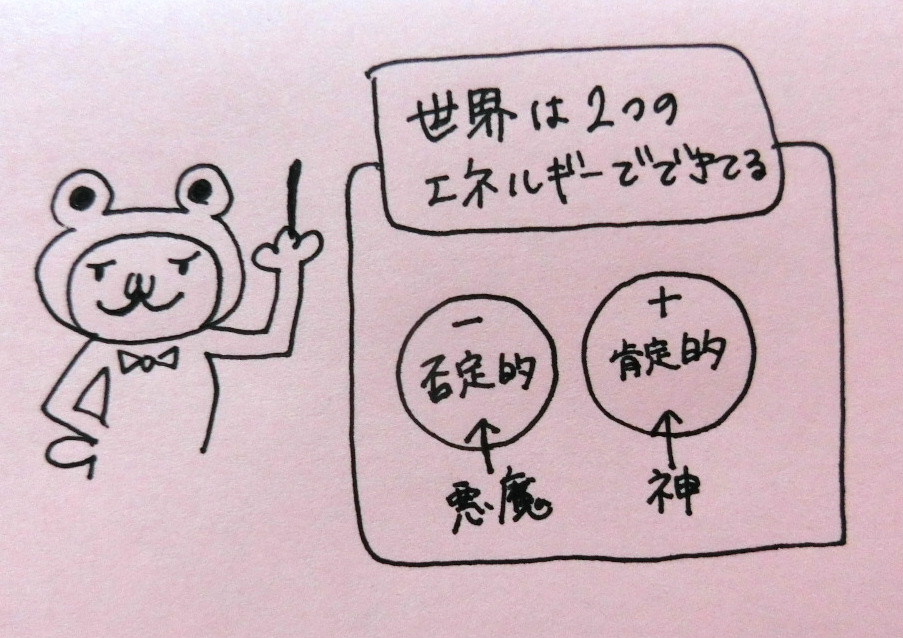 世界は2つの
エネルギーでできてる
－
否定的
悪魔
＋
肯定的
神